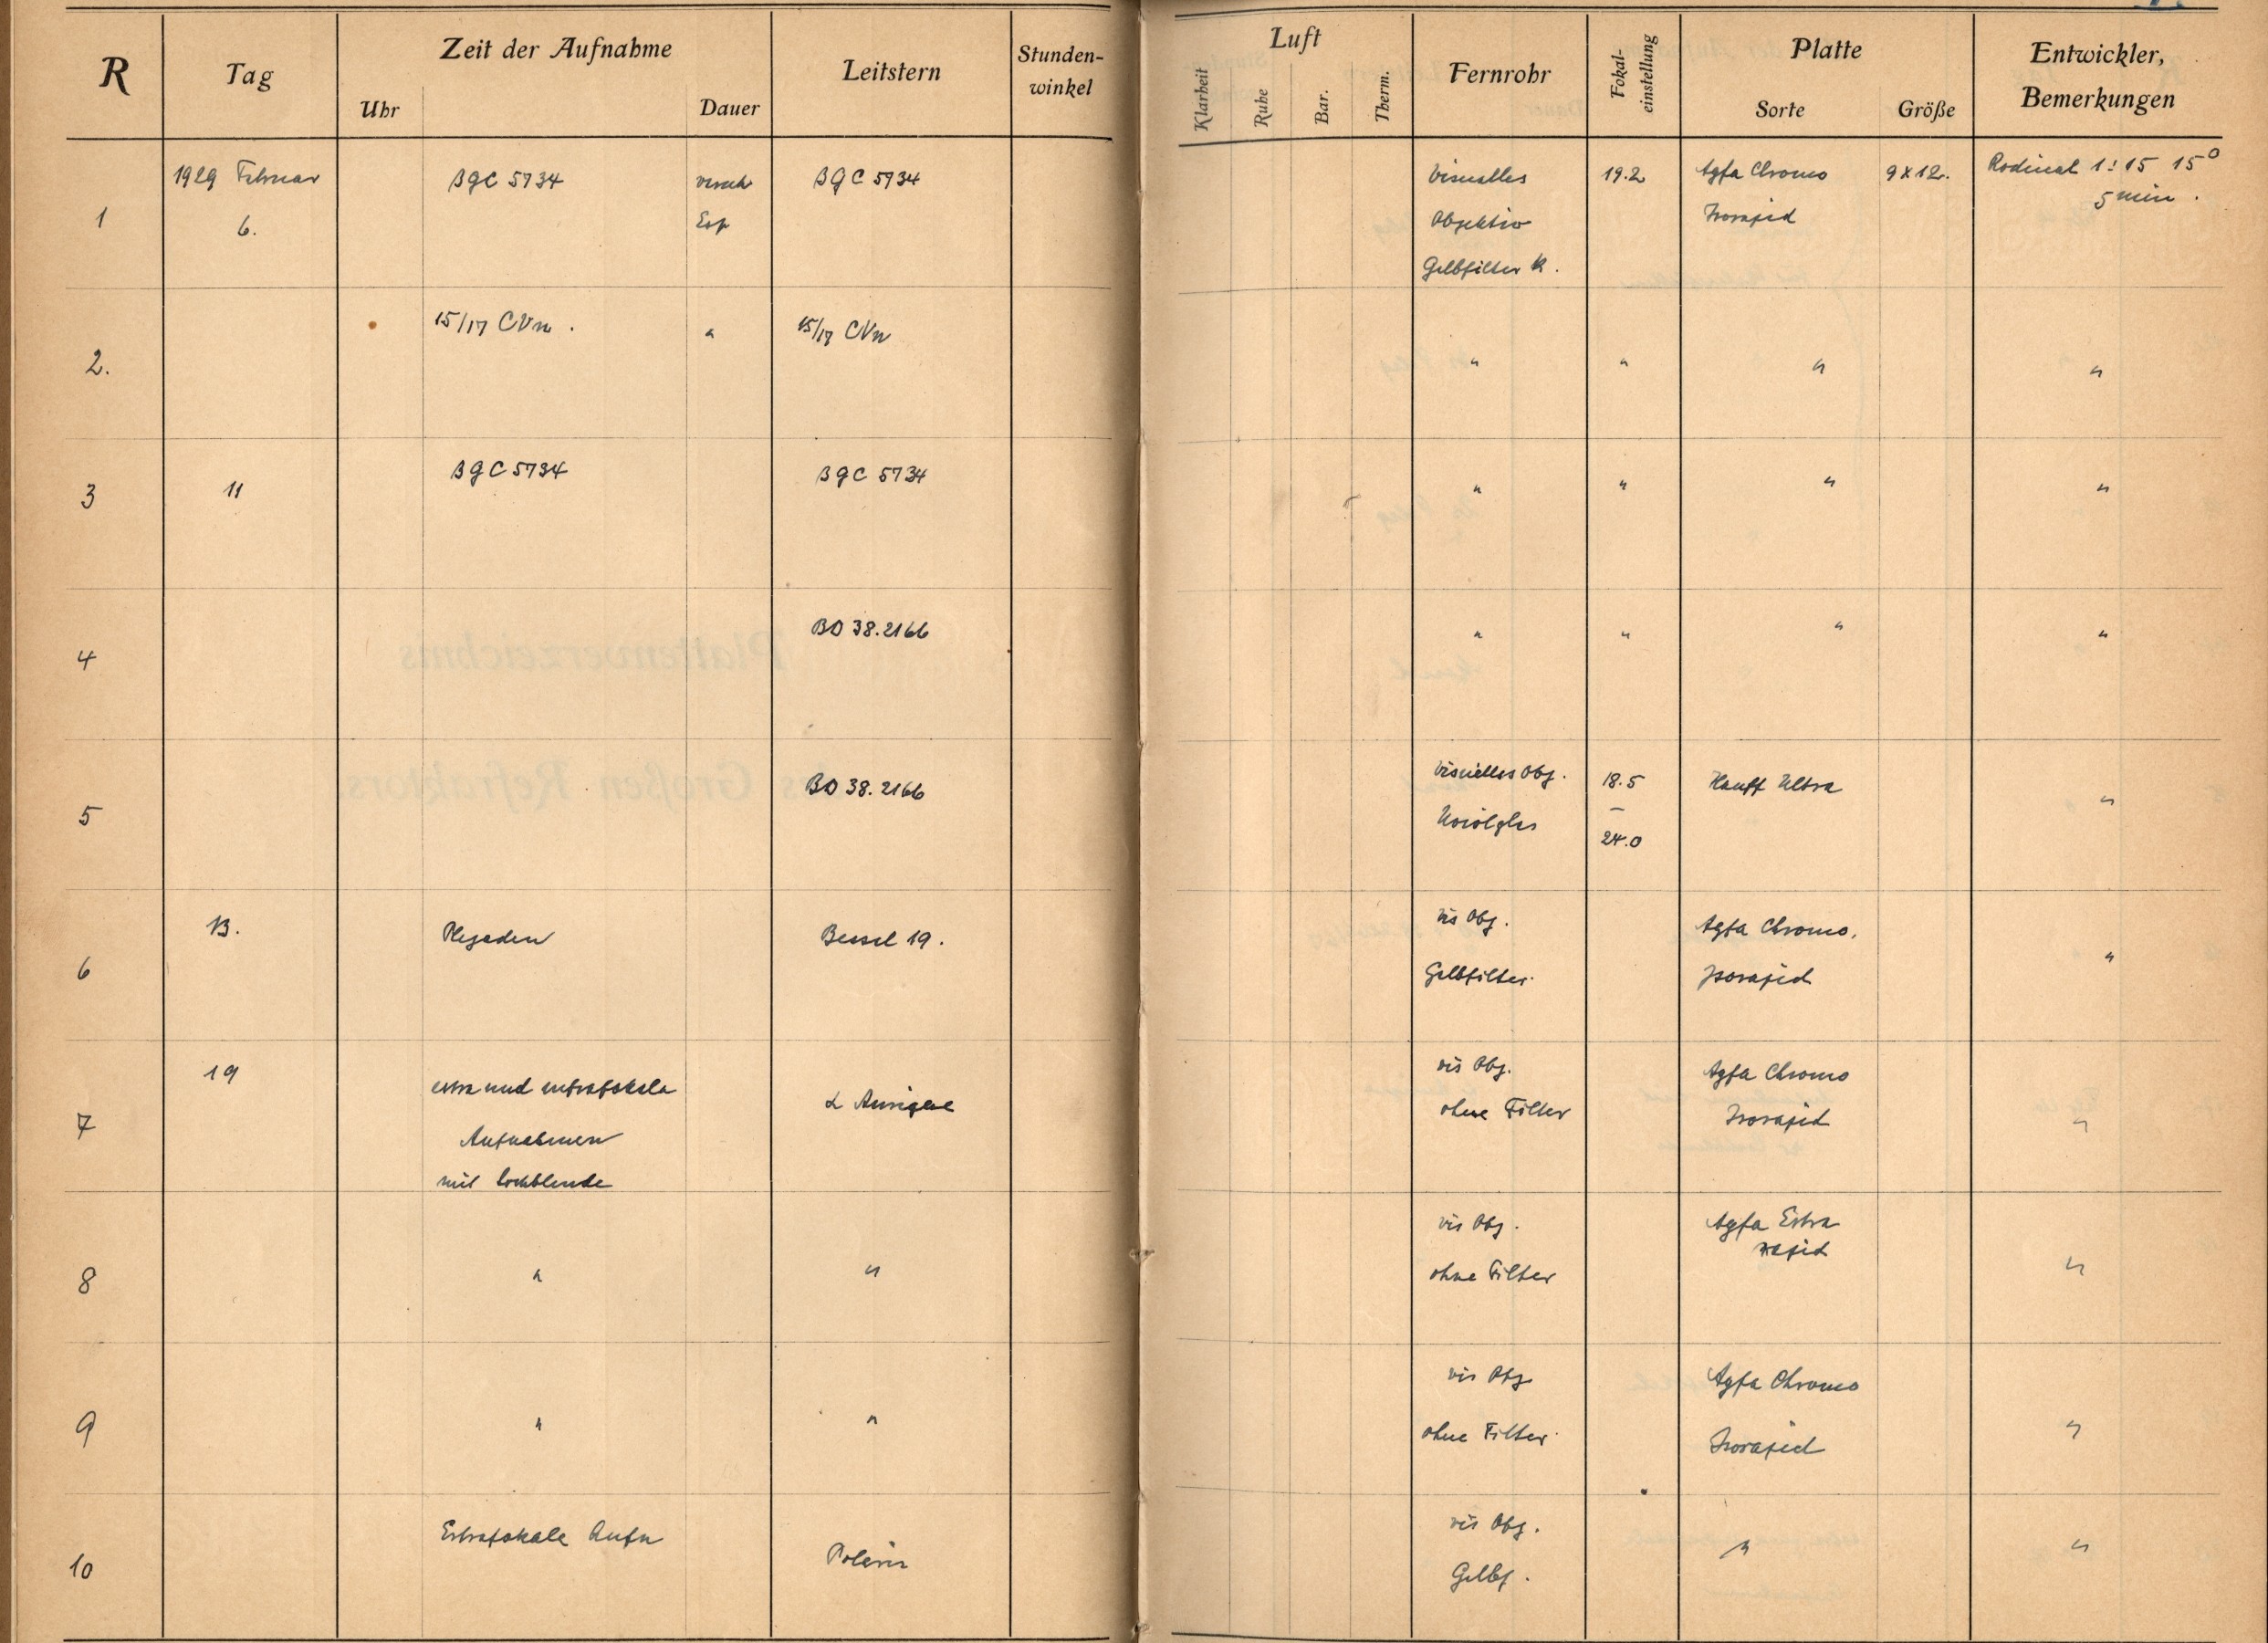 R Tag Zeit der Aufnahme Leitstern Stunden-winkel Luft Fernrohr Fokal-einstellung Platte Entwickler, Bemerkungen
Uhr Dauer Klarheit Ruhe Bar. Therm. Sorte Größe
1 1929 Februar BGC 5734 versch BGC 5734 Visuelles 19.2 Agfa Chromo 9x12. Rodinal 1:15 15°
6. Exp Objektiv Isorapid 5 min.
Gelbfilter K.
2. 15/17 CVn. " 15/17 CVn " " " "
3 11 BGC 5734 BGC 5734 " " " "
4 BD 38.2166 " " " "
5 BD 38.2166 Visuelles Obj. 18.5 Hauff Ultra "
–
24.0
6 13. Plejaden Bessel 19. vis Obj. Agfa Chromo. "
Gelbfilter. Isorapid
7 19 extra und intrafokale α Aurigae vis Obj. Agfa Chromo "
Aufnahmen ohne Filter Isorapid
mit Lochblende
8 " " vis Obj. Agfa Extra "
ohne Filter rapid
9 " " vis Obj Agfa Chromo "
ohne Filter Isorapid
10 Extrafokale Aufn Polaris vis Obj. " "
Gelbf.